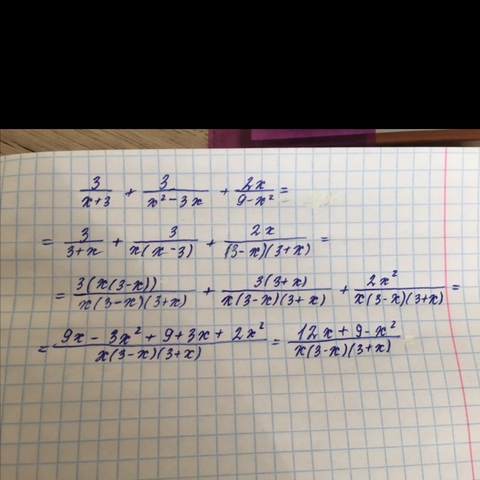 3/(x+3) + 3/(x²-3x) + 2x/(9-x²) =
= 3/(3+x) + 3/(x(x-3)) + 2x/((3-x)(3+x)) =
= 3(x(3-x))/(x(3-x)(3+x)) + 3(3+x)/(x(3-x)(3+x)) + 2x²/(x(3-x)(3+x)) =
= (9x - 3x² + 9 + 3x + 2x²)/(x(3-x)(3+x)) = (12x + 9 - x²)/(x(3-x)(3+x))